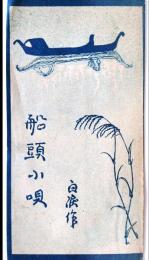 船頭小唄
白浪作